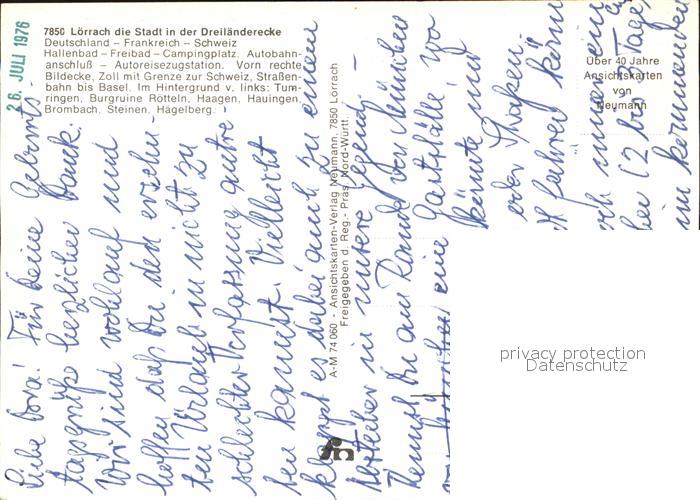 26. JULI 1976
7850 Lörrach die Stadt in der Dreiländerecke
Deutschland – Frankreich – Schweiz
Hallenbad – Freibad – Campingplatz. Autobahn-
anschluß – Autoreisezugstation. Vorn rechte
Bildecke, Zoll mit Grenze zur Schweiz, Straßen-
bahn bis Basel. Im Hintergrund v. links: Tum-
ringen, Burgruine Rötteln, Haagen, Hauingen,
Brombach, Steinen, Hägelberg.
Über 40 Jahre
Ansichtskarten
von
Neumann
A-M 74 060 - Ansichtskarten-Verlag Neumann, 7850 Lörrach
Freigegeben d. Reg.- Präs. Nord-Württ.
Liebe Dora! Für Deine Geburts-
tagsgrüße herzlichen Dank.
Wir sind wohlauf und
hoffen daß Du den ersehn-
ten Urlaub in nicht zu
schlechter Verfassung antre-
ten kannst. Vielleicht
klappt es dabei auch zu einem
Abstecher in unsere Gegend. –
Kennst Du am Rande von München
eine Gaststätte, wo
könnte und
oder
fahren
(2 bis 3 Tage)
kommenden
privacy protection
Datenschutz